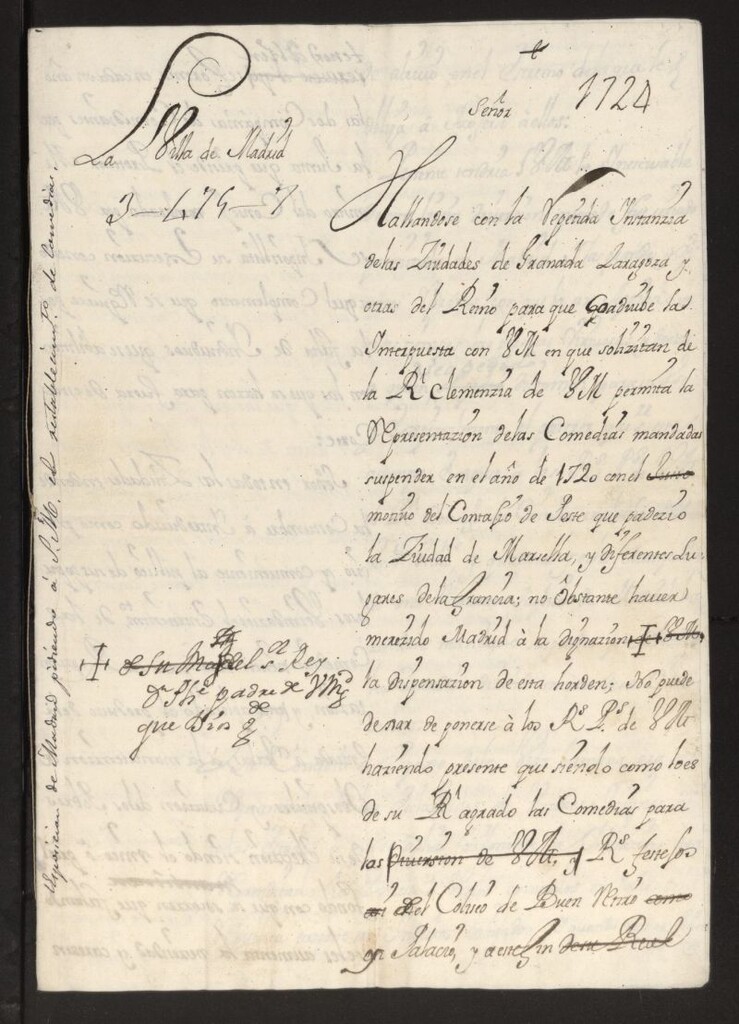 1724
Señor
La Villa de Madrid
3-475-7
Hallandose con la Repetida Instanzia
de las Ziudades de Granada Zaragoza y
otras del Reino para que Coadiube la
Interpuesta con VM en que solizitan de
la Rl Clemenzia de VM permita la
Representazion de las Comedias mandadas
suspender en el año de 1720 con el
motivo del Contagio de Peste que padezio
la Ziudad de Marsella, y diferentes Lu-
gares de la Francia; no Obstante haver
merezido Madrid à la Dignazion VM,
la dispensazion de esta horden; No puede
dexar de ponerse à los Rs Ps de VM
haziendo presente que siendo como lo es
de su Rl agrado las Comedias para
las Diversion de VM, y Rs festejos
del Coliseo de Buen Retiro como
en Palacio, y a este fin de su Real
de Su Magd el sr Rey
Dn Phe padre de VMgd
que Dios
Esposicion de Madrid pidiendo á S.M. el restablecimto de Comedias.